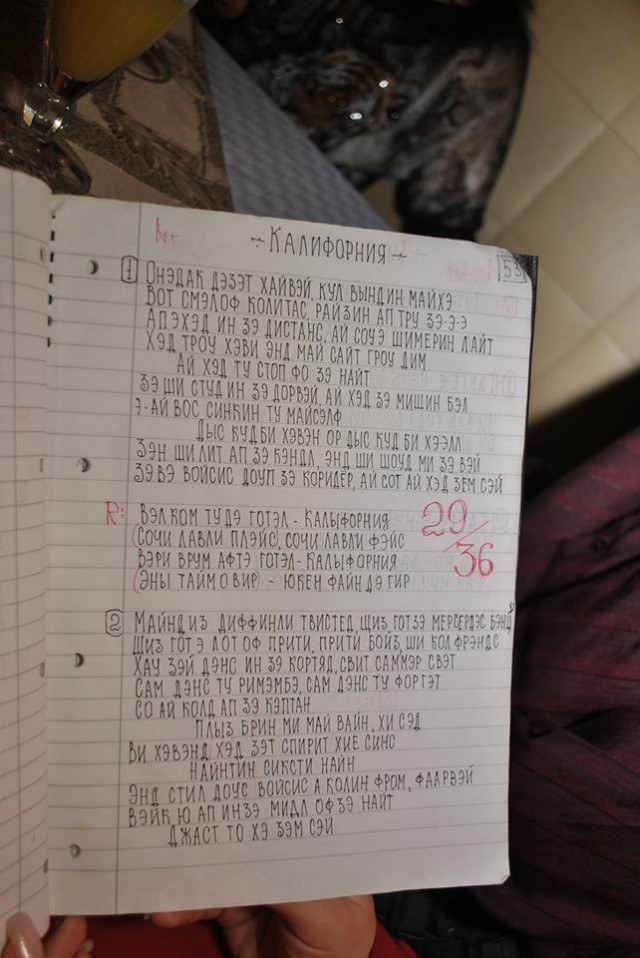 -Калифорния-
53
1 Онэдак дэзэт хайвэй, кул вындин майхэ
Вот смэлоф колитас, райзин ап тру зэ-э-э
Апэхэд ин зэ дистанс, ай соуэ шимерин лайт
Хэд троу хэви энд май сайт гроу дим
Ай хэд ту стоп фо зэ найт
Зэ ши студ ин зэ дорвэй, ай хэд зэ мишин бэл
Э-ай вос синкин ту майсэлф
Дыс куд би хэвэн ор дыс куд би хээлл
Зэн ши лит ап зэ кэндл, энд ши шоуд ми зэ вэй
Зэ вэ войсис доуп зэ коридёр, ай сот ай хэд зем сэй
R: Вэлком ту дэ готэл - Калыфорния
(Сочи лавли плэйс), сочи лавли фэйс
Вэри врум афтэ готэл - Калыфорния
(Эны тайм о вир) - юкен файн дэ гир
29/36
2 Майнд из диффинли твистед, шиз гот зэ мерсердэс бэндз
Шиз гот э лот оф прити, прити бойз, ши кол фрэндс
Хау зэй дэнс ин зэ кортяд, свит саммэр свэт
Сам дэнс ту римэмбэ, сам дэнс ту форгэт
Со ай колд ап зэ кэптан
Плыз брин ми май вайн, хи сэд
Ви хэвэнд хэд зэт спирит хие синс
Найнтин сиксти найн
Энд стил доус войсис а колин фром, фаарвэй
Вэйк ю ап ин зэ мидл оф зэ найт
Джаст то хэ зэм сэй